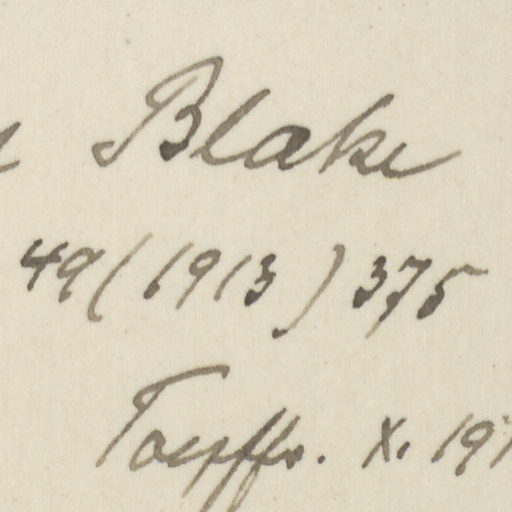 Blake
49 (1913) 375
Toepffr. X. 191